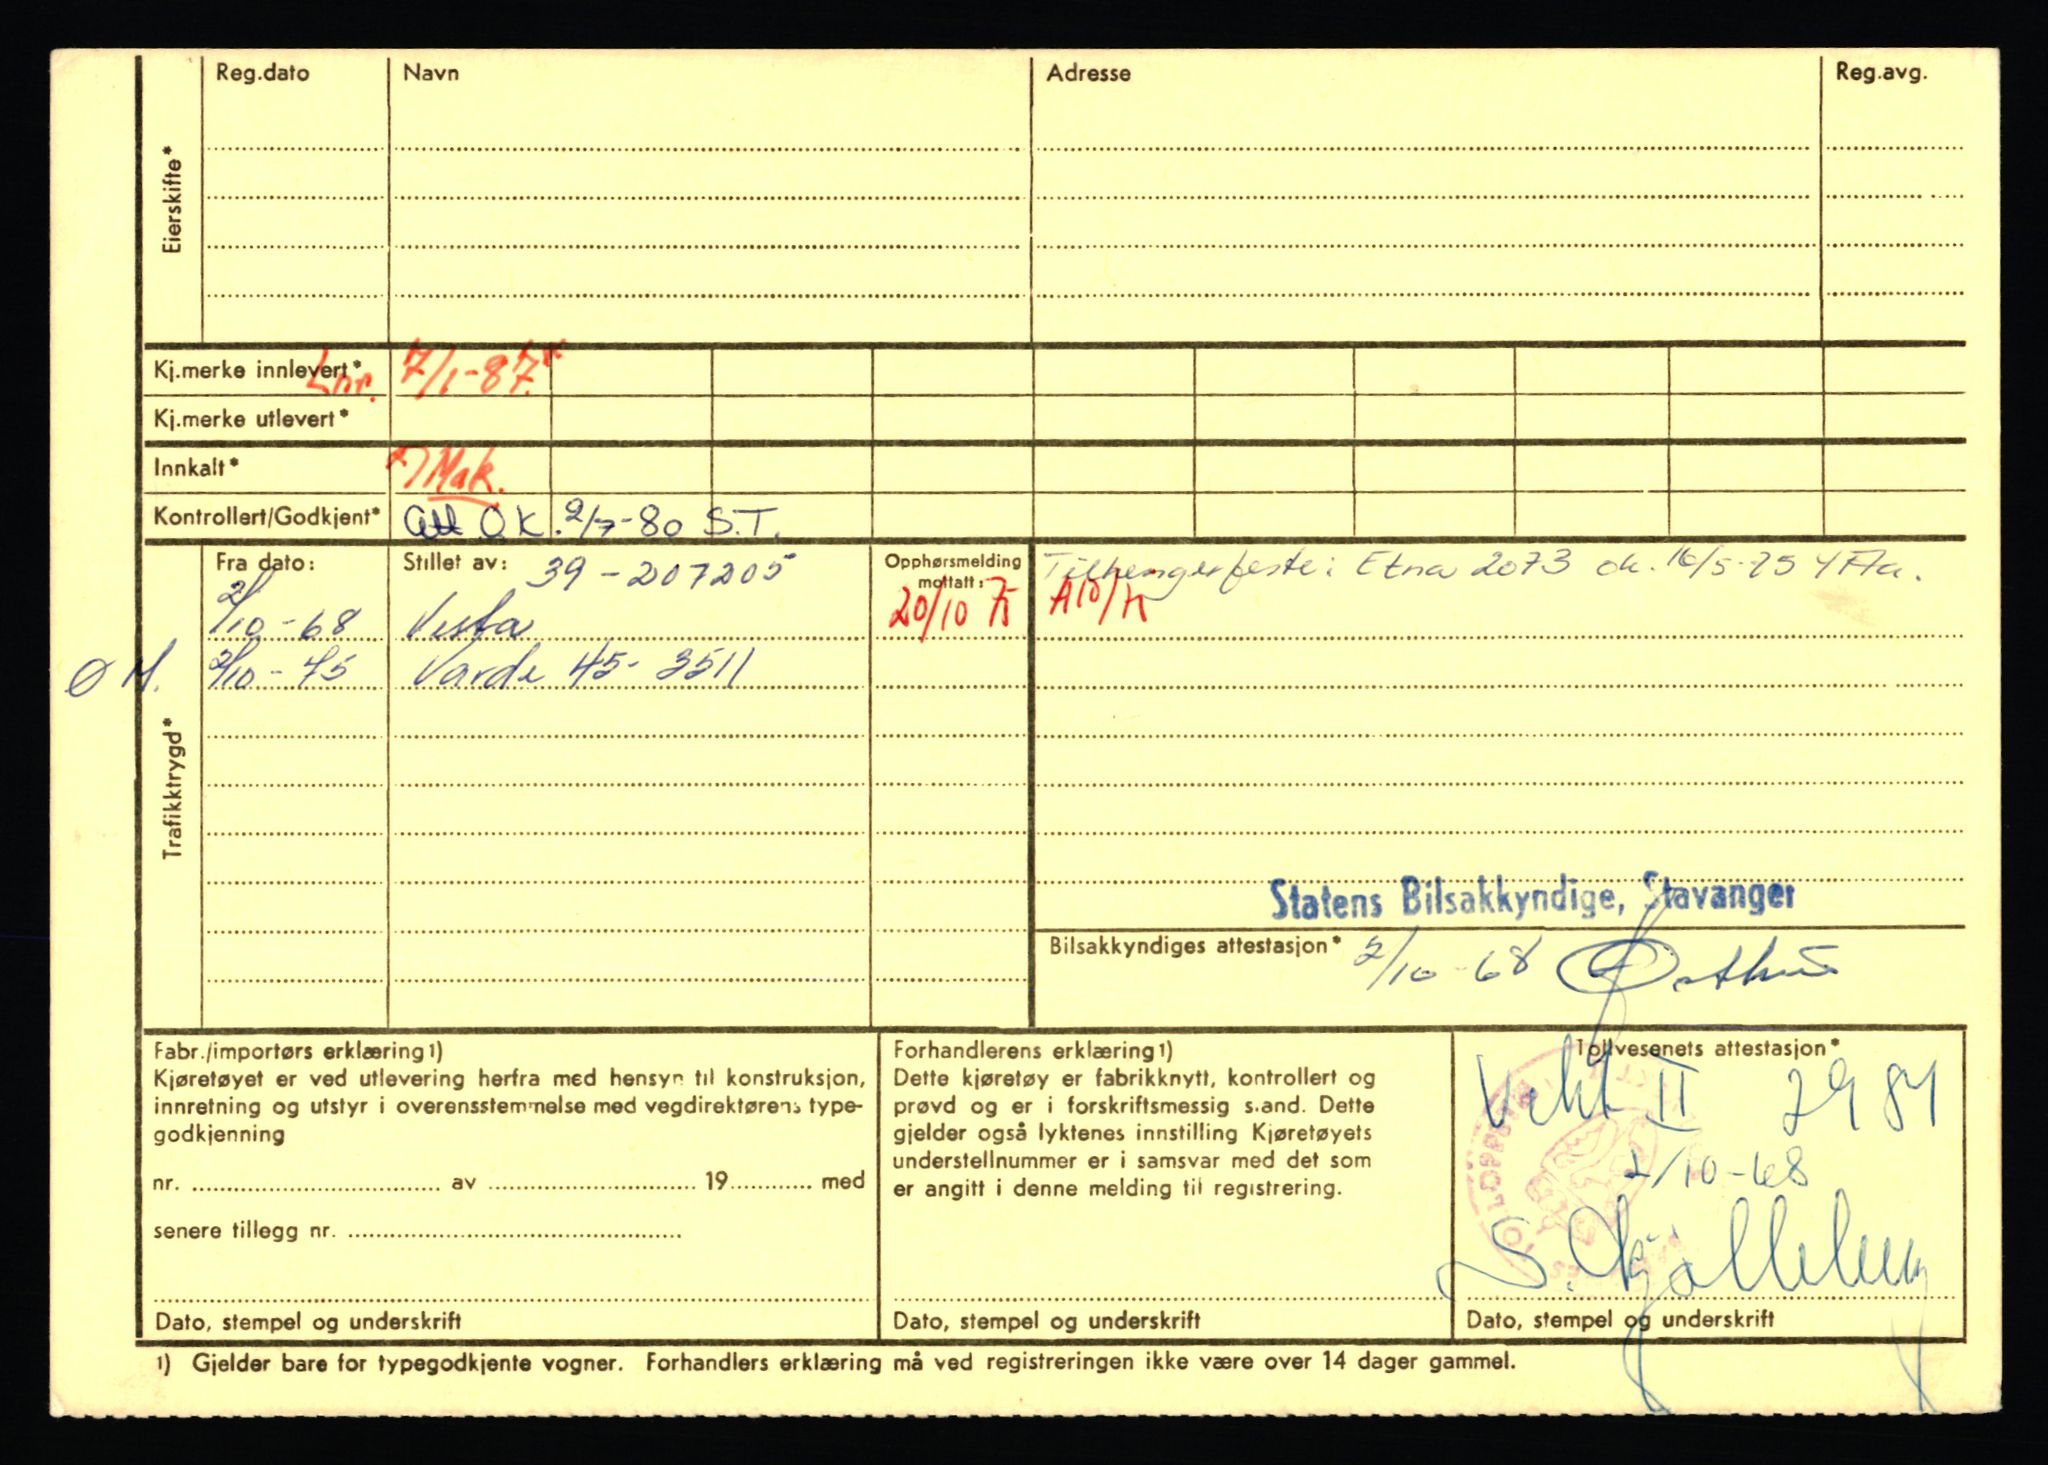 Reg.dato Navn Adresse Reg.avg.
Eierskifte*
Kj.merke innlevert* 7/1-87.
Kj.merke utlevert*
Innkalt* *) Mak.
Kontrollert/Godkjent* Att O.K. 2/7-80 S.T.
Trafikktrygd*
Fra dato: Stillet av: 39-207205 Opphørsmelding mottatt: Tilhengerfeste: Etna 2073 ok. 16/5-75
2/10-68 Vesta 20/10 75
ØM. 2/10-75 Varde 45-3511
Statens Bilsakkyndige, Stavanger
Bilsakkyndiges attestasjon* 2/10-68
Fabr./importørs erklæring1)
Kjøretøyet er ved utlevering herfra med hensyn til konstruksjon,
innretning og utstyr i overensstemmelse med vegdirektørens type-
godkjenning
nr. av 19 med
senere tillegg nr.
Dato, stempel og underskrift
Forhandlerens erklæring1)
Dette kjøretøy er fabrikknytt, kontrollert og
prøvd og er i forskriftsmessig stand. Dette
gjelder også lyktenes innstilling Kjøretøyets
understellnummer er i samsvar med det som
er angitt i denne melding til registrering.
Dato, stempel og underskrift
Tollvesenets attestasjon*
Vekt II 2984
2/10-68
Dato, stempel og underskrift
1) Gjelder bare for typegodkjente vogner. Forhandlers erklæring må ved registreringen ikke være over 14 dager gammel.